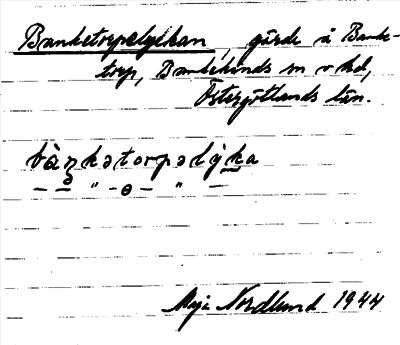 Banketorpslyckan, gärde å Banke-
torp, Bankekinds sn o hd,
Östergötlands län.
bàŋkətorpəlỳka
— — " - ɵ - " —
Maja Nordlund 1944